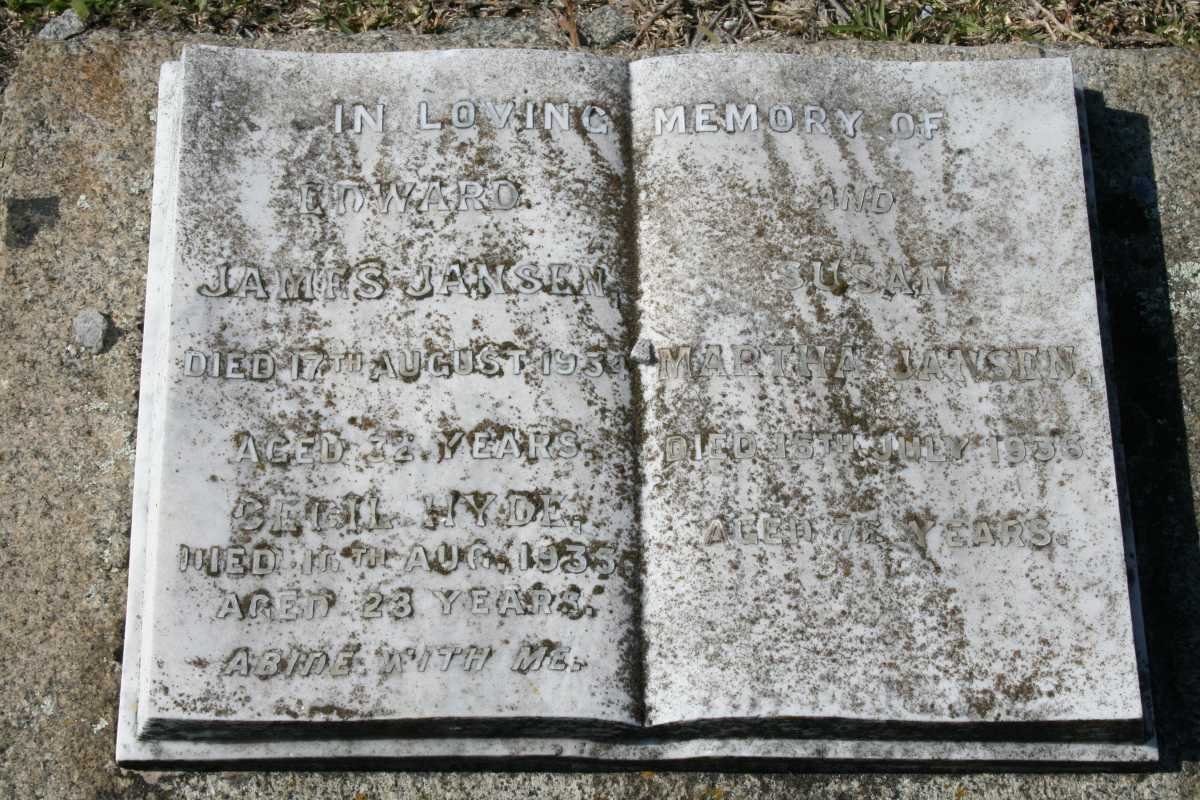 IN LOVING MEMORY OF
EDWARD
JAMES JANSEN,
DIED 17TH AUGUST
AGED YEARS.
CECIL HYDE.
DIED AUG. 1933.
AGED 23 YEARS.
ABIDE WITH ME.
AND
SUSAN
MARTHA JANSEN,
DIED 15TH JULY
AGED YEARS.